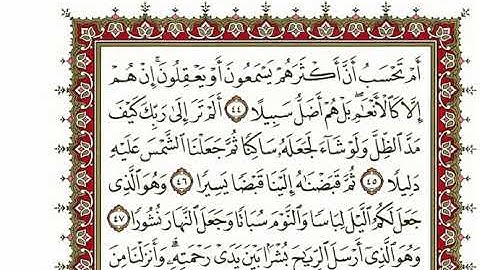 أَمْ تَحْسَبُ أَنَّ أَكْثَرَهُمْ يَسْمَعُونَ أَوْ يَعْقِلُونَ ۚ إِنْ هُمْ
إِلَّا كَالْأَنْعَٰمِ ۖ بَلْ هُمْ أَضَلُّ سَبِيلًا ٤٤ أَلَمْ تَرَ إِلَىٰ رَبِّكَ كَيْفَ
مَدَّ ٱلظِّلَّ وَلَوْ شَآءَ لَجَعَلَهُۥ سَاكِنًا ثُمَّ جَعَلْنَا ٱلشَّمْسَ عَلَيْهِ
دَلِيلًا ٤٥ ثُمَّ قَبَضْنَٰهُ إِلَيْنَا قَبْضًا يَسِيرًا ٤٦ وَهُوَ ٱلَّذِى
جَعَلَ لَكُمُ ٱلَّيْلَ لِبَاسًا وَٱلنَّوْمَ سُبَاتًا وَجَعَلَ ٱلنَّهَارَ نُشُورًا ٤٧
وَهُوَ ٱلَّذِىٓ أَرْسَلَ ٱلرِّيَٰحَ بُشْرًۢا بَيْنَ يَدَىْ رَحْمَتِهِۦ ۚ وَأَنزَلْنَا مِنَ